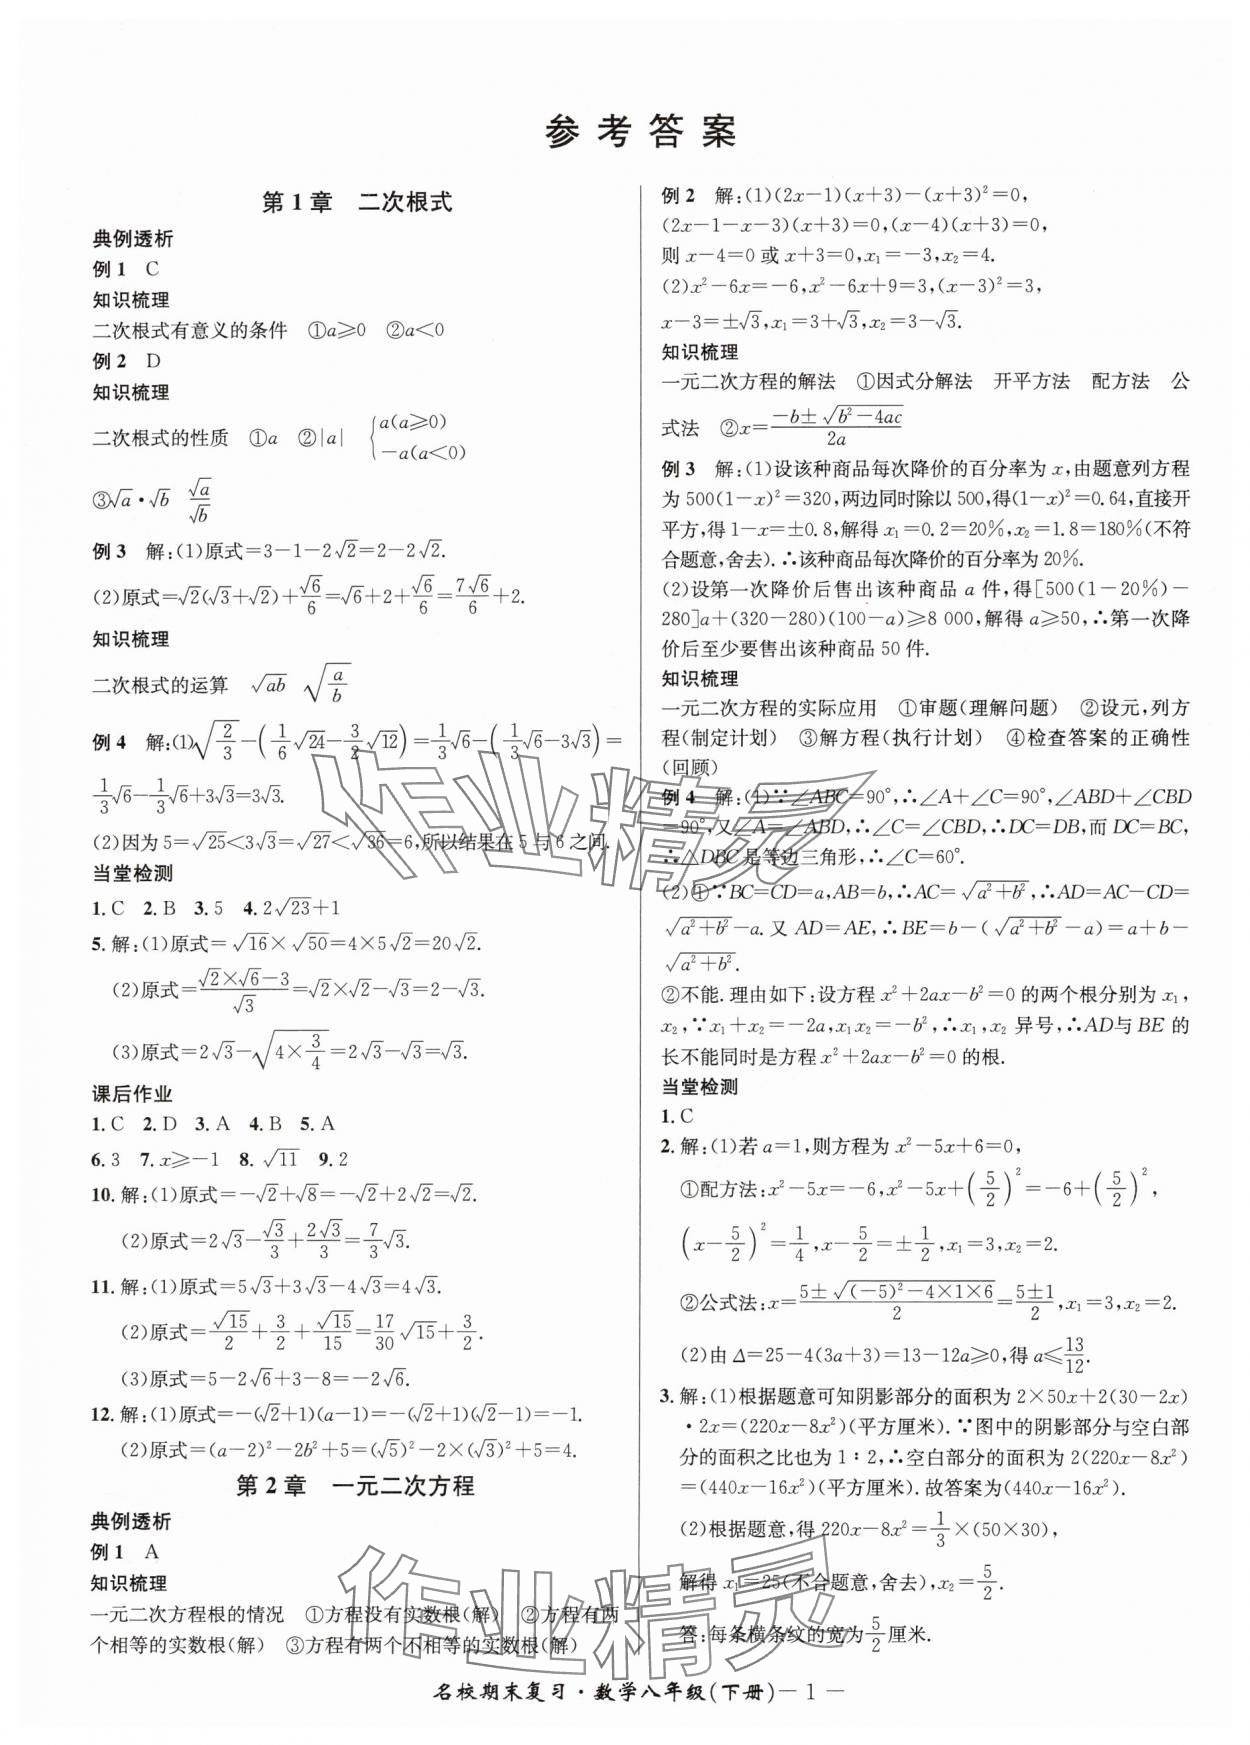 参考答案
第1章 二次根式
典例透析
例1 C
知识梳理
二次根式有意义的条件 ①a≥0 ②a<0
例2 D
知识梳理
二次根式的性质 ①a ②|a| {a(a≥0) −a(a<0)
③√a·√b √a/√b
例3 解:(1)原式=3−1−2√2=2−2√2.
(2)原式=√2(√3+√2)+√6/6=√6+2+√6/6=7√6/6+2.
知识梳理
二次根式的运算 √ab √(a/b)
例4 解:(1)√(2/3)−(1/6√24−3/2√12)=1/3√6−(1/3√6−3√3)=
1/3√6−1/3√6+3√3=3√3.
(2)因为5=√25<3√3=√27<√36=6,所以结果在5与6之间.
当堂检测
1.C 2.B 3.5 4.2√23+1
5.解:(1)原式=√16×√50=4×5√2=20√2.
(2)原式=(√2×√6−3)/√3=√2×√2−√3=2−√3.
(3)原式=2√3−√(4×3/4)=2√3−√3=√3.
课后作业
1.C 2.D 3.A 4.B 5.A
6.3 7.x≥−1 8.√11 9.2
10.解:(1)原式=−√2+√8=−√2+2√2=√2.
(2)原式=2√3−√3/3+2√3/3=7/3√3.
11.解:(1)原式=5√3+3√3−4√3=4√3.
(2)原式=√15/2+3/2+√15/15=17/30√15+3/2.
(3)原式=5−2√6+3−8=−2√6.
12.解:(1)原式=−(√2+1)(a−1)=−(√2+1)(√2−1)=−1.
(2)原式=(a−2)²−2b²+5=(√5)²−2×(√3)²+5=4.
第2章 一元二次方程
典例透析
例1 A
知识梳理
一元二次方程根的情况 ①方程没有实数根(解) ②方程有两
个相等的实数根(解) ③方程有两个不相等的实数根(解)
例2 解:(1)(2x−1)(x+3)−(x+3)²=0,
(2x−1−x−3)(x+3)=0,(x−4)(x+3)=0,
则x−4=0或x+3=0,x₁=−3,x₂=4.
(2)x²−6x=−6,x²−6x+9=3,(x−3)²=3,
x−3=±√3,x₁=3+√3,x₂=3−√3.
知识梳理
一元二次方程的解法 ①因式分解法 开平方法 配方法 公
式法 ②x=(−b±√(b²−4ac))/2a
例3 解:(1)设该种商品每次降价的百分率为x,由题意列方程
为500(1−x)²=320,两边同时除以500,得(1−x)²=0.64,直接开
平方,得1−x=±0.8,解得x₁=0.2=20%,x₂=1.8=180%(不符
合题意,舍去).∴该种商品每次降价的百分率为20%.
(2)设第一次降价后售出该种商品a件,得[500(1−20%)−
280]a+(320−280)(100−a)≥8 000,解得a≥50,∴第一次降
价后至少要售出该种商品50件.
知识梳理
一元二次方程的实际应用 ①审题(理解问题) ②设元,列方
程(制定计划) ③解方程(执行计划) ④检查答案的正确性
(回顾)
例4 解:(1)∵∠ABC=90°,∴∠A+∠C=90°,∠ABD+∠CBD
=90°,又∠A=∠ABD,∴∠C=∠CBD,∴DC=DB,而DC=BC,
∴△DBC是等边三角形,∴∠C=60°.
(2)①∵BC=CD=a,AB=b,∴AC=√(a²+b²),∴AD=AC−CD=
√(a²+b²)−a.又AD=AE,∴BE=b−(√(a²+b²)−a)=a+b−
√(a²+b²).
②不能.理由如下:设方程x²+2ax−b²=0的两个根分别为x₁,
x₂,∵x₁+x₂=−2a,x₁x₂=−b²,∴x₁,x₂异号,∴AD与BE的
长不能同时是方程x²+2ax−b²=0的根.
当堂检测
1.C
2.解:(1)若a=1,则方程为x²−5x+6=0,
①配方法:x²−5x=−6,x²−5x+(5/2)²=−6+(5/2)²,
(x−5/2)²=1/4,x−5/2=±1/2,x₁=3,x₂=2.
②公式法:x=(5±√((−5)²−4×1×6))/2=(5±1)/2,x₁=3,x₂=2.
(2)由Δ=25−4(3a+3)=13−12a≥0,得a≤13/12.
3.解:(1)根据题意可知阴影部分的面积为2×50x+2(30−2x)
·2x=(220x−8x²)(平方厘米).∵图中的阴影部分与空白部
分的面积之比也为1∶2,∴空白部分的面积为2(220x−8x²)
=(440x−16x²)(平方厘米).故答案为(440x−16x²).
(2)根据题意,得220x−8x²=1/3×(50×30),
解得x₁=25(不合题意,舍去),x₂=5/2.
答:每条横条纹的宽为5/2厘米.
名校期末复习·数学八年级(下册)—1—
作业精灵
作业精灵